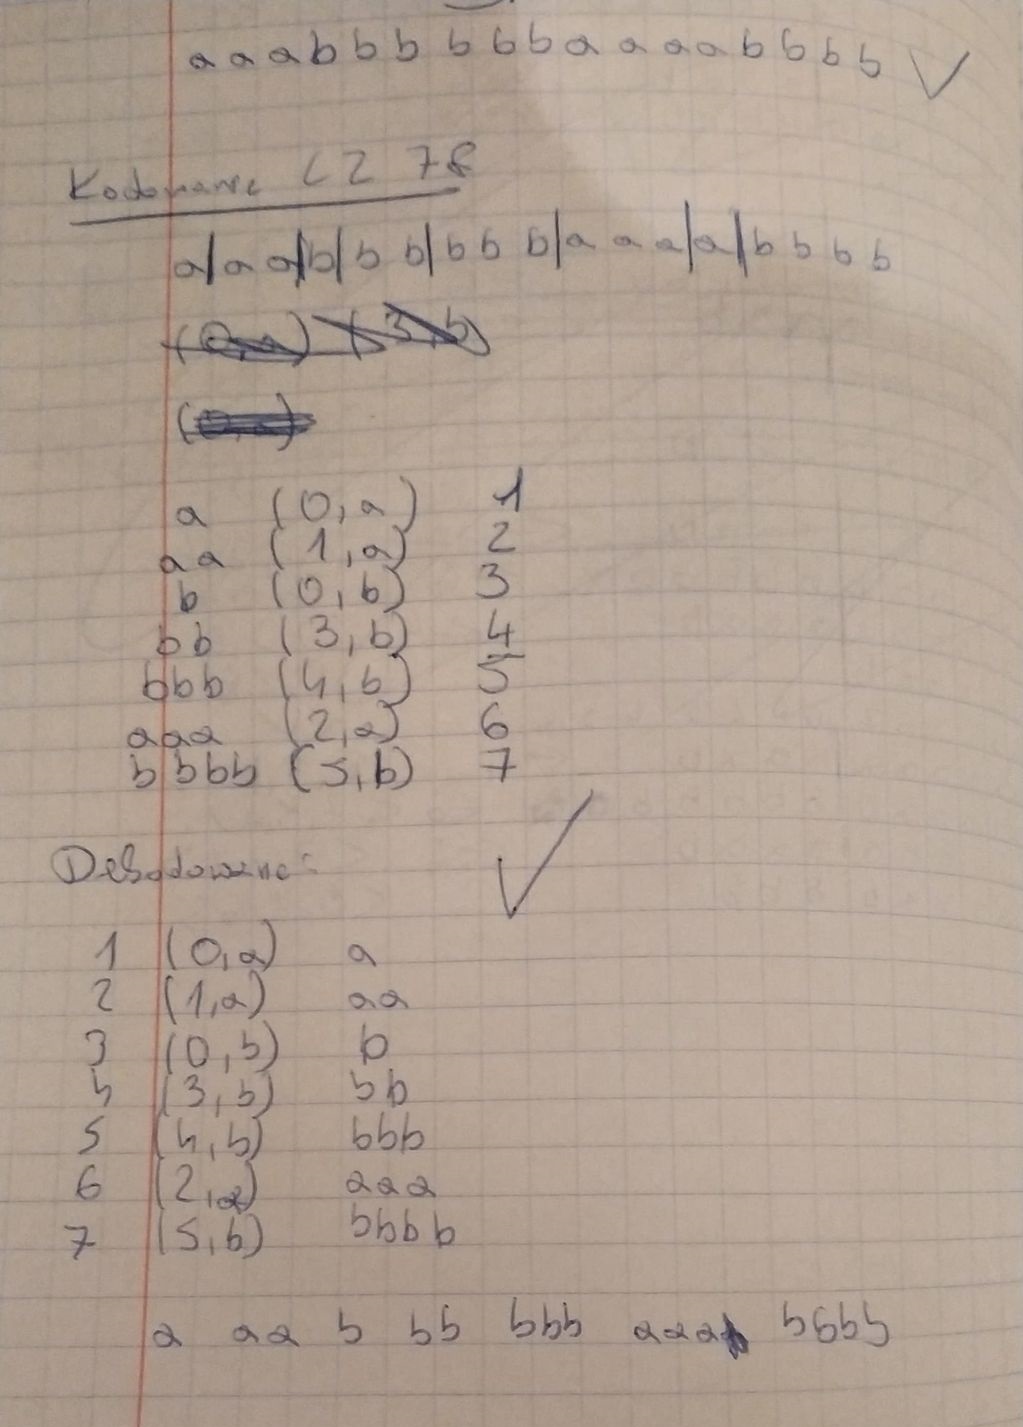 a a a b b b b b b a a a a b b b b
Kodowanie LZ 78
a|a a|b|b b|b b b|a a a|a|b b b b
(0,a) (3,b)
a (0,a) 1
aa (1,a) 2
b (0,b) 3
bb (3,b) 4
bbb (4,b) 5
aaa (2,a) 6
bbbb (5,b) 7
Dekodowanie:
1 (0,a) a
2 (1,a) aa
3 (0,b) b
4 (3,b) bb
5 (4,b) bbb
6 (2,a) aaa
7 (5,b) bbbb
a aa b bb bbb aaa bbbb